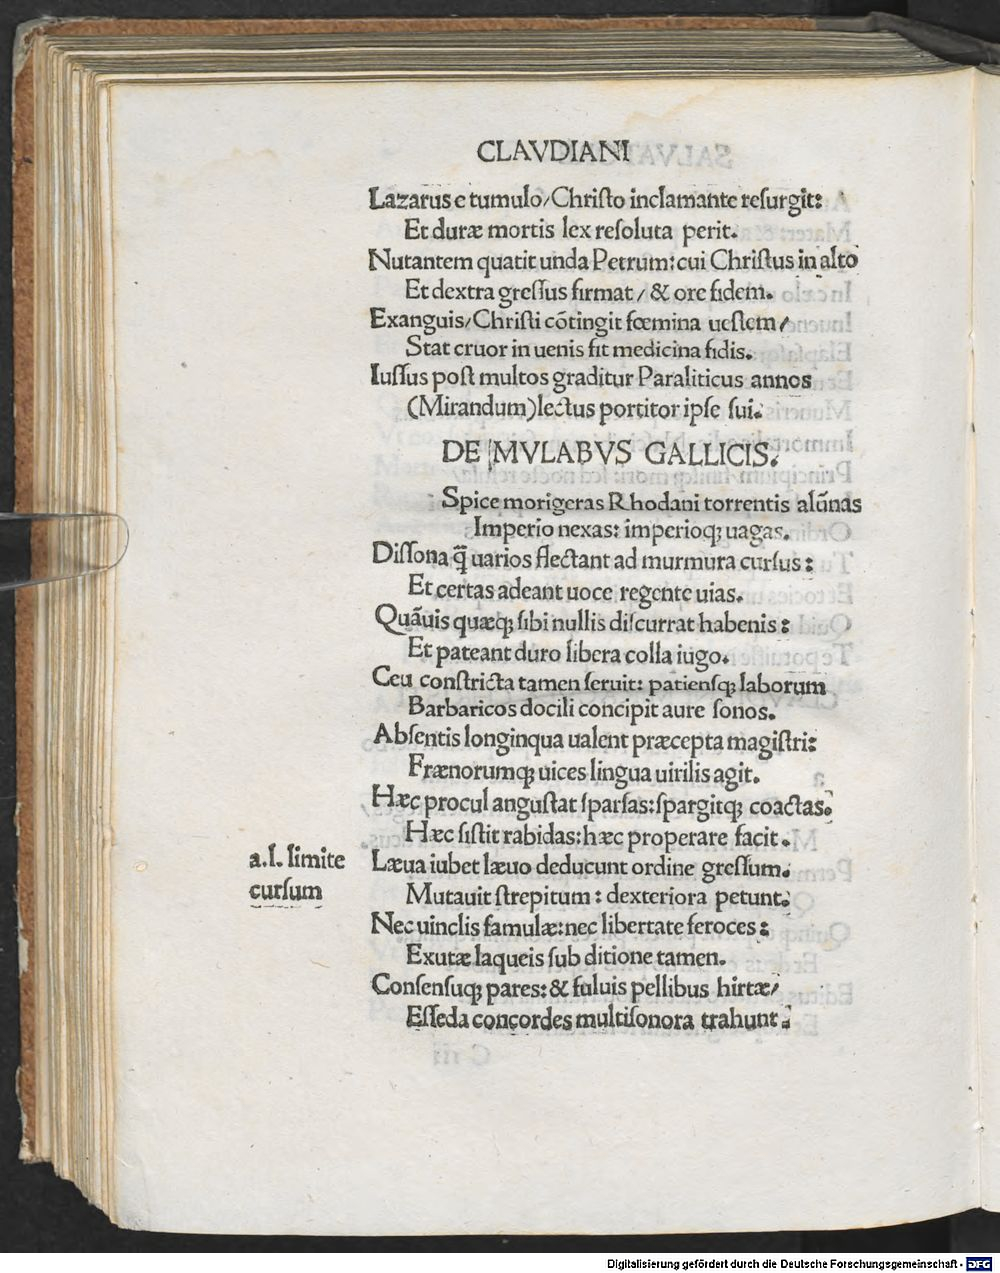 CLAVDIANI
Lazarus e tumulo/Chriſto inclamante reſurgit:
Et duræ mortis lex reſoluta perit.
Nutantem quatit unda Petrum: cui Chriſtus in alto
Et dextra greſſus firmat/ & ore fidem.
Exanguis/Chriſti cõtingit fœmina ueſtem/
Stat cruor in uenis fit medicina fidis.
Iuſſus poſt multos graditur Paraliticus annos
(Mirandum)lectus portitor ipſe ſui.
DE MVLABVS GALLICIS.
Spice morigeras Rhodani torrentis alūnas
Imperio nexas: imperioqꝫ uagas.
Diſſona q̃ uarios flectant ad murmura curſus:
Et certas adeant uoce regente uias.
Quāuis quæqꝫ ſibi nullis diſcurrat habenis:
Et pateant duro libera colla iugo.
Ceu conſtricta tamen ſeruit: patienſqꝫ laborum
Barbaricos docili concipit aure ſonos.
Abſentis longinqua ualent præcepta magiſtri:
Frænorumqꝫ uices lingua uirilis agit.
Hæc procul anguſtat ſparſas: ſpargitqꝫ coactas.
Hæc ſiſtit rabidas: hæc properare facit.
a.l. limite
curſum
Læua iubet læuo deducunt ordine greſſum.
Mutauit ſtrepitum: dexteriora petunt.
Nec uinclis famulæ: nec libertate feroces:
Exutæ laqueis ſub ditione tamen.
Conſenſuqꝫ pares: & fuluis pellibus hirtæ/
Eſſeda concordes multiſonora trahunt.
Digitalisierung gefördert durch die Deutsche Forschungsgemeinschaft - DFG